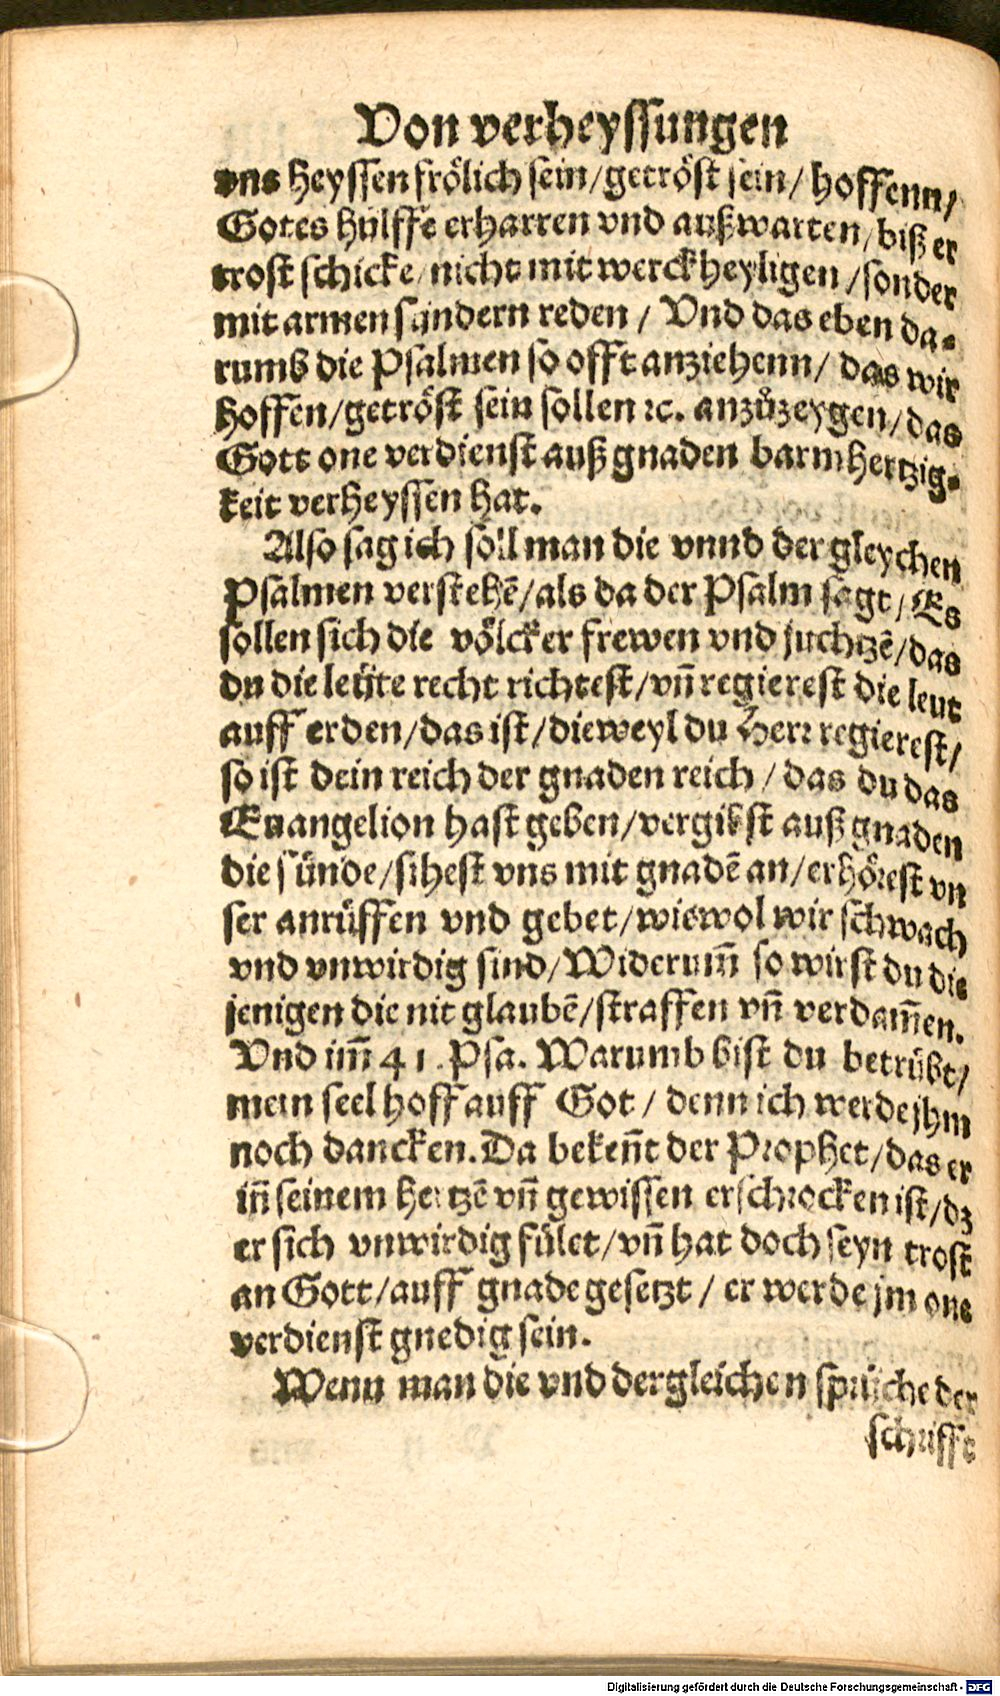 Von verheyssungen
vns heyssen frölich sein/getröst sein/ hoffenn/
Gotes hülffe erharren vnd außwarten/biß er
trost schicke/nicht mit werckheyligen /sonder
mit armen sündern reden / Vnd das eben da-
rumb die Psalmen so offt anziehenn/ das wir
hoffen/getröst sein sollen ꝛc. anzůzeygen/das
Gott one verdienst auß gnaden barmhertzig-
keit verheyssen hat.
Also sag ich soll man die vnnd der gleychen
Psalmen verstehē/als da der Psalm sagt/Es
sollen sich die völcker frewen vnd juchtzē/das
du die leüte recht richtest/vñ regierest die leut
auff erden/das ist/dieweyl du Herr regierest/
so ist dein reich der gnaden reich /das du das
Euangelion hast geben/vergibst auß gnaden
die sünde/sihest vns mit gnadē an/erhörest vn
ser anrüffen vnd gebet/wiewol wir schwach
vnd vnwirdig sind/Widerum̃ so wirst du die
jenigen die nit glaubē/straffen vñ verdam̃en.
Vnd im̃ 41. Psa. Warumb bist du betrübt/
mein seel hoff auff Got / denn ich werde jhm
noch dancken. Da bekeñt der Prophet/das er
iñ seinem hertzē vñ gewissen erschrocken ist/dz
er sich vnwirdig fület/vñ hat doch seyn trost
an Gott/auff gnade gesetzt / er werde jm one
verdienst gnedig sein.
Wenn man die vnd dergleichen sprüche der
schrifft
Digitalisierung gefördert durch die Deutsche Forschungsgemeinschaft - DFG